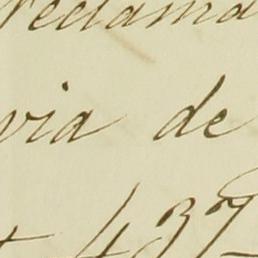 reclama
via de
437